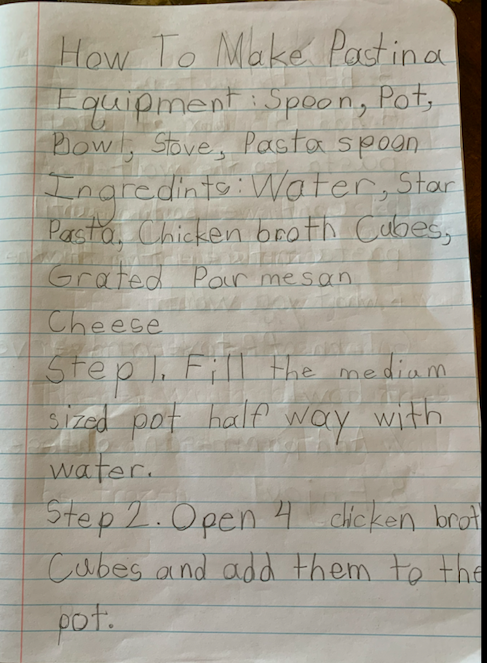 How To Make Pastina
Equipment: Spoon, Pot,
Bowl, Stove, Pasta spoon
Ingredints: Water, Star
Pasta, Chicken broth Cubes,
Grated Parmesan
Cheese
Step 1. Fill the medium
sized pot half way with
water.
Step 2. Open 4 chicken brot
Cubes and add them to the
pot.